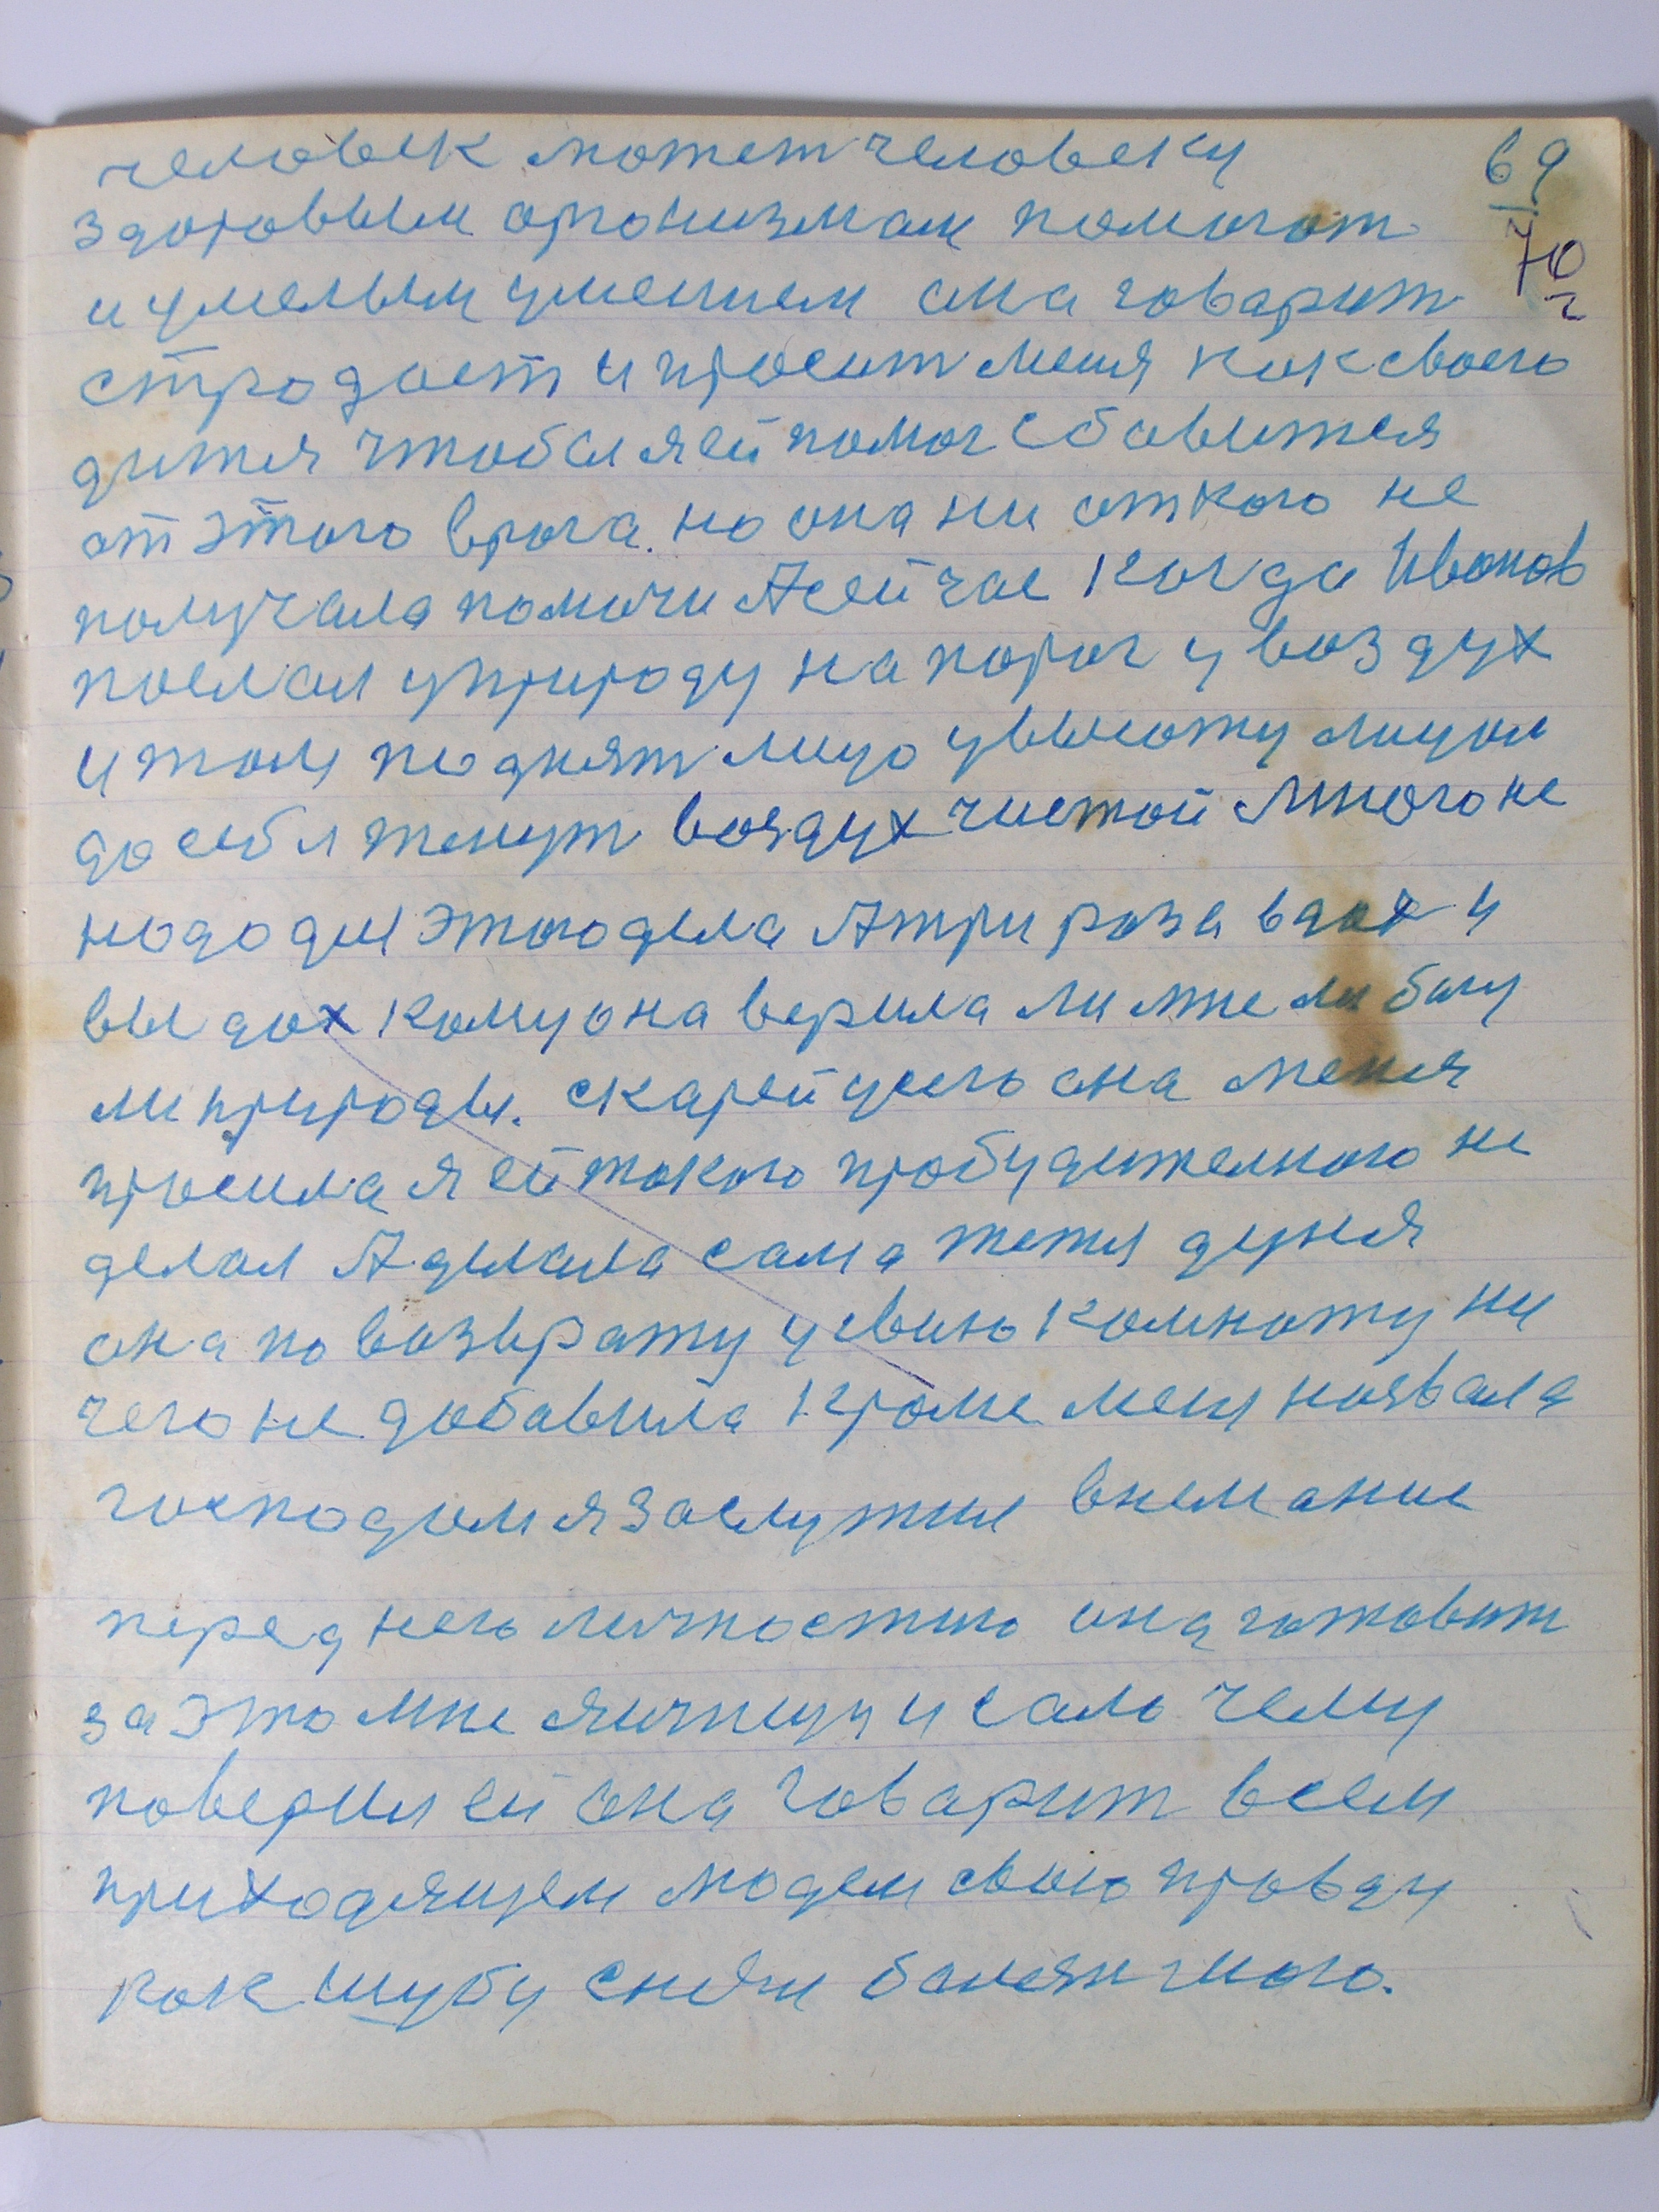 человек может человеку
69
здоровым организмам помогат
70
и умелым умением она говарит
страдает и просит меня как своего
дитя чтобы я ей помог сбавится
от этого врага. но она ни откого не
получала помочи А сейчас когда Иванов
послал у природу на порог у воздух
и там поднят лицо у высоту лицом
до себя тянут воздух чистой много не
надо для этого дела А три раза вдох и
выдох кому она верила ли мне ли богу
ли природы. скарей усего она меня
просила я ей такого пробудителного не
делал А делала сама тетя дуня
она по возврату у свою комноту ни
чего не добавила кроме меня назвала
господом я заслужил внемание
перед него личностью она готовит
за это мне яичницу и сало чему
поверил ей она говарит всем
приходящем людем свою правду
как шубу сняли болезн мою.